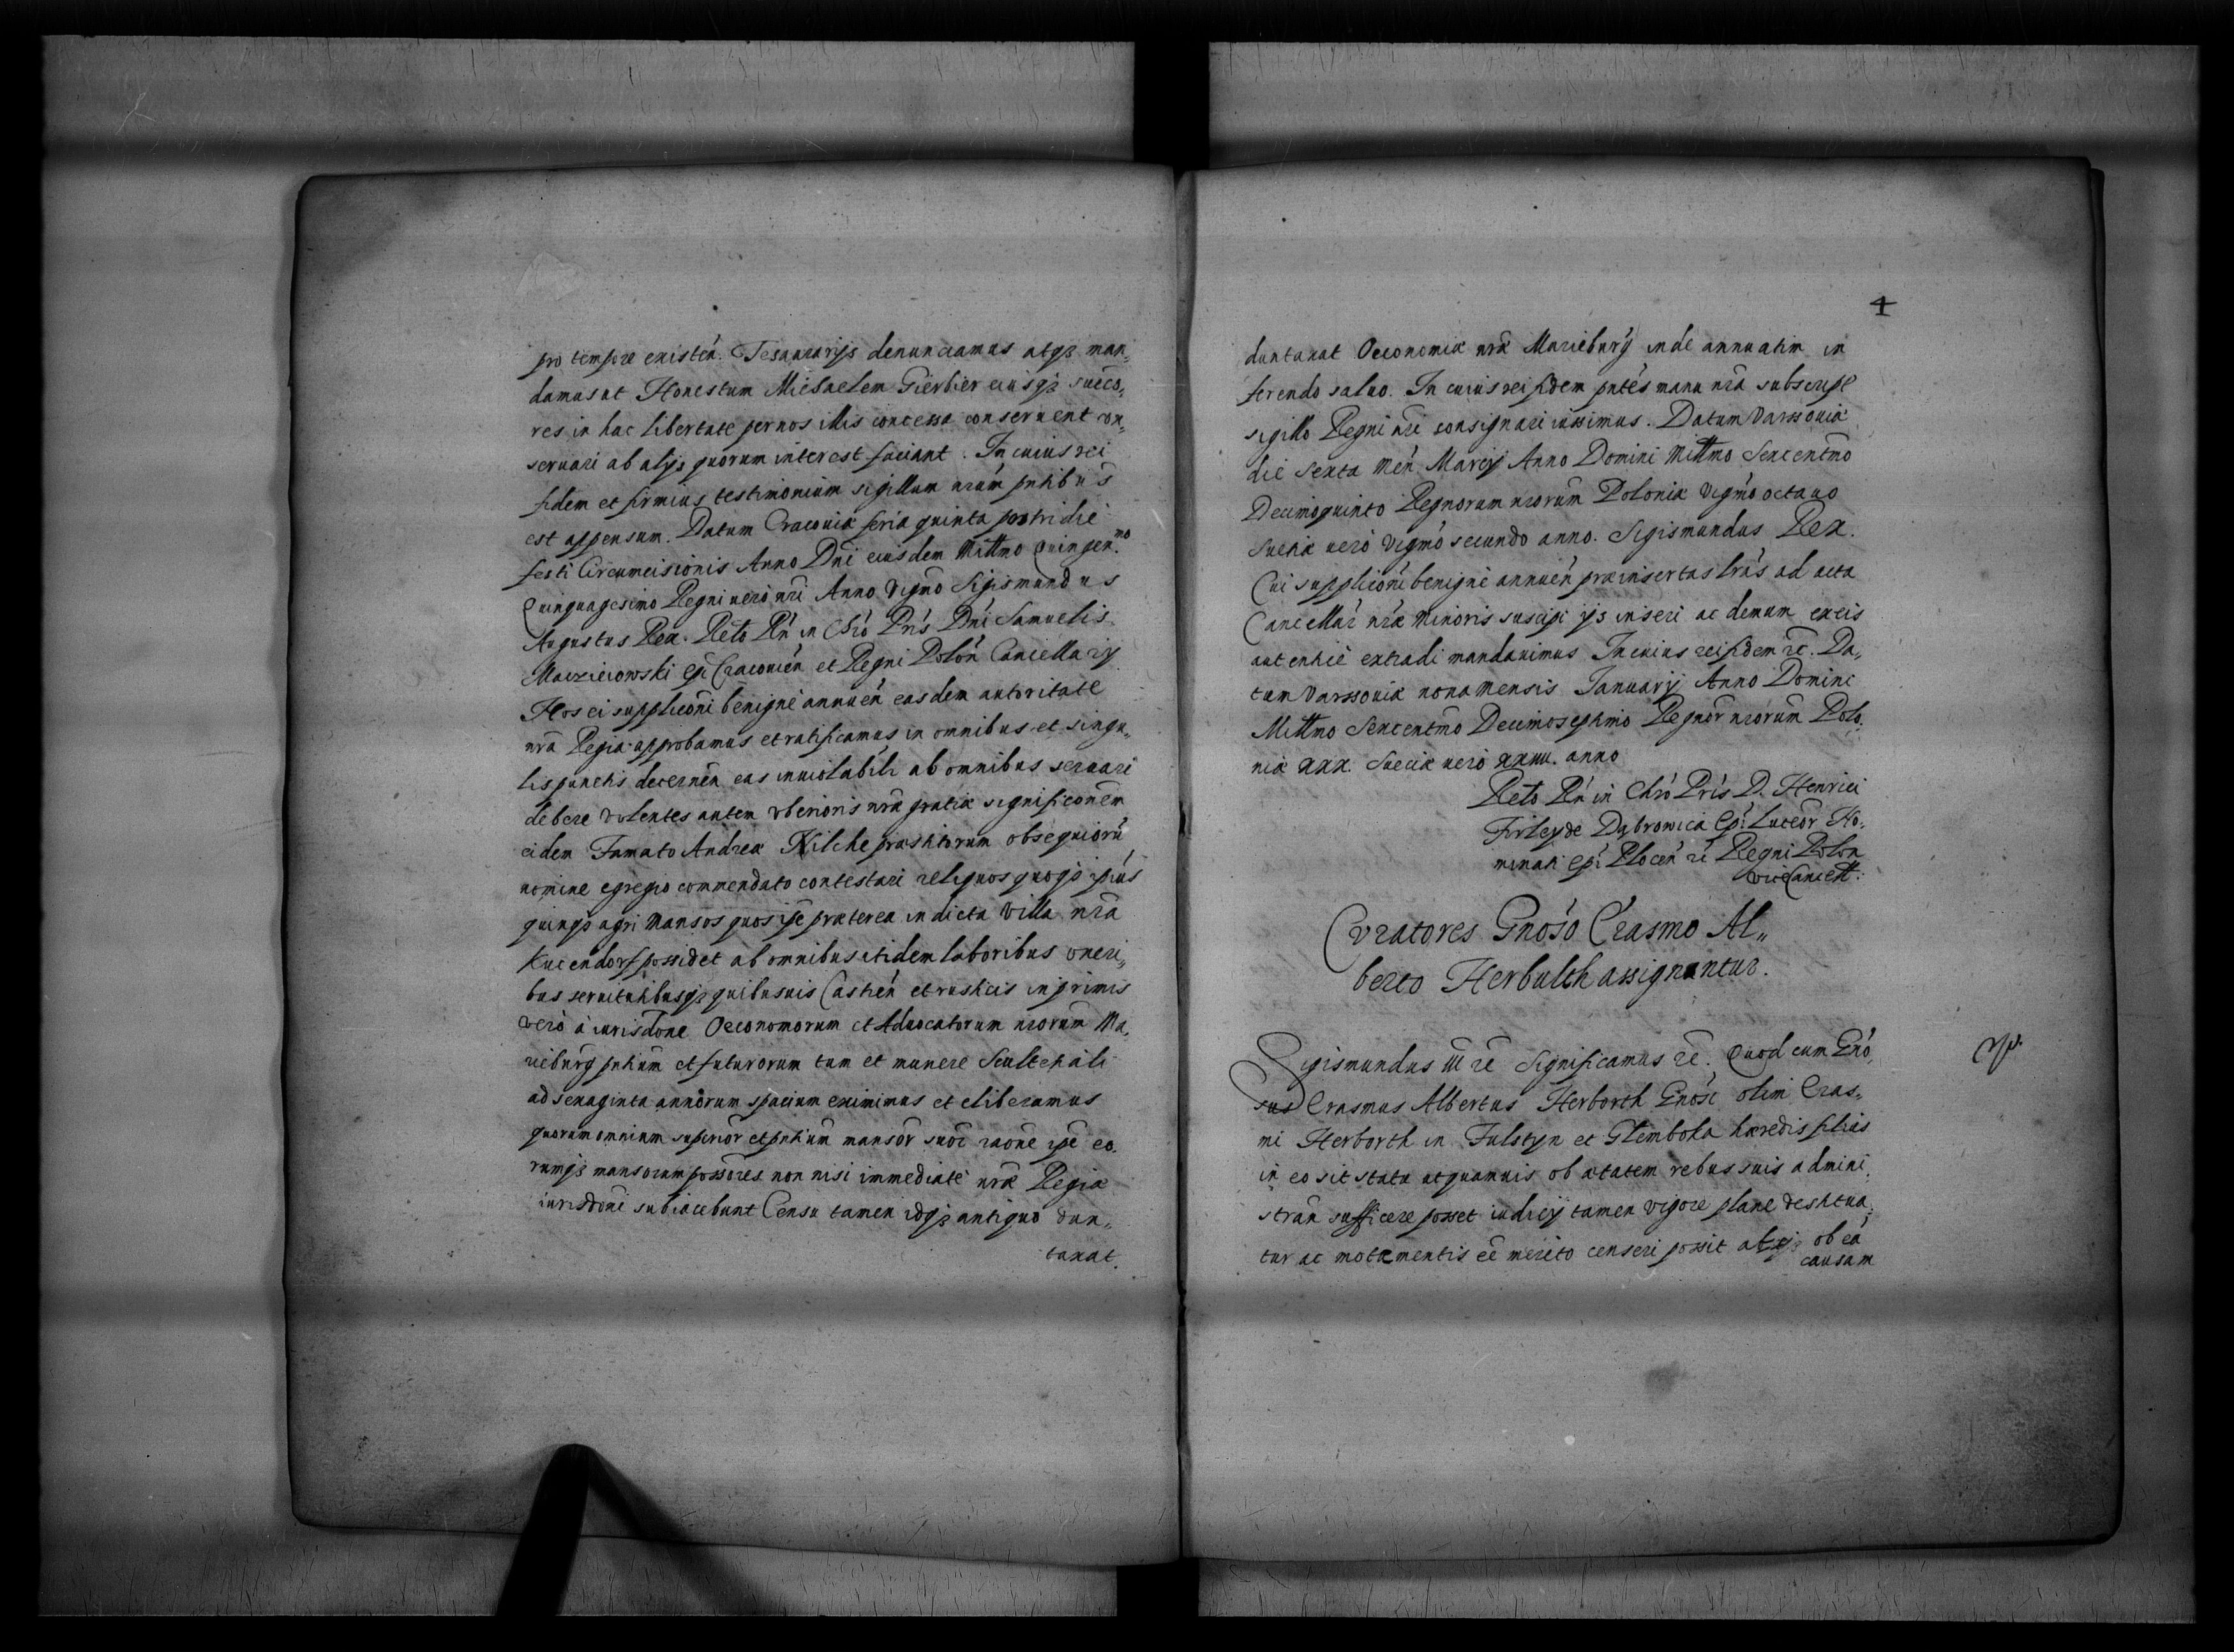 pro tempore existen. Tesaurarijs denunciamus atqз man„
damus ut Honestum Michaelem Gierbier eiusqз succo„
res in hac libertate per nos illis concessa conseruent con„
seruari ab alijs quorum interest faciant. In cuius rei
fidem et firmius testimonium sigillum nrum pntibus
est appensum. Datum Cracouiæ feria quinta postridie
festi Circumcisionis Anno Dni eiusdem Millmo Quingen.mo
Quinquagesimo Regni uero nri Anno Vigmo Sigismundus
Augustus Rex. Relo Rn in Chro Pris Dni Samuelis
Macieiowski Epi Cracouien et Regni Polon Cancellarij
Hos ei supplicōni benigne annuen easdem autoritate
nra Regia approbamus et ratificamus in omnibus et singu„
lis punctis decernen eas inuiolabili ab omnibus seruari
debere volentes autem vberioris nræ gratiæ significonem
eidem Famato Andreæ Nilche præstitorum obsequiorū
nomine egregio commendato contestari reliquos quoqз ipius
quinqз agri mansos quos ipe præterea in dicta Villa nra
Kucendorf possidet ab omnibus itidem laboribus oneri„
bus seruitutibusqз quibusuis Castren et rusticis inprimis
vero à iurisdōne Oeconomorum et Aduocatorum nrorum Ma„
rieburg pntium et futurorum tum et munere Scultetiali
ad sexaginta annorum spacium eximimus et eliberamus
quorum omnium superior et pntium mansor suor raōne ipe eo„
rumqз mansorum possores non nisi immediate nræ Regiæ
iurisdōni subiacebunt Censu tamen idqз antiquo dun„
taxat.
4
duntaxat Oeconomiæ nræ Marieburg inde annuatim in
ferendo saluo. In cuius rei fidem pntes manu nra subscript
sigillo Regni nri consignari iussimus. Datum Varssouiæ
die Sexta Men Marcij Anno Domini Millmo Sexcentmo
Decimoquinto Regnorum nrorum Poloniæ Vigmo octauo
Sueciæ uero Vigmo secundo anno. Sigismundus Rex.
Cui supplicōni benigne annuen præinsertas lras ad acta
Cancellar nræ Minoris suscipi ijs inseri ac demum ex eis
autentice extradi mandauimus In cuius rei fidem rc. Da„
tum Varssouiæ nona Mensis Januarij Anno Domini
Millmo Sexcentmo Decimoseptimo Regnor nrorum Polo„
niæ xxx. Sueciæ uero xxiiii. anno
Relo Rn in Chro Pris D. Henrici
Firley de Dąbrowica Epi Luceor No„
minati Epi Plocen rc Regni Polon
ViceCancell:
Curatores Gnoso Erasmo Al„
berto Herbulth assignantur.
Sigismundus III rc Significamus rc. Quod cum Gno„
sus Erasmus Albertus Herborth Gnosi olim Eras„
mi Herborth in Fulstyn et Glemboka hæredis filius
in eo sit statu ut quamuis ob ætatem rebus suis admini„
stran sufficere posset iudicij tamen vigore plane destitua„
tur ac motæ mentis ee merito censeri possit ob ea
causam